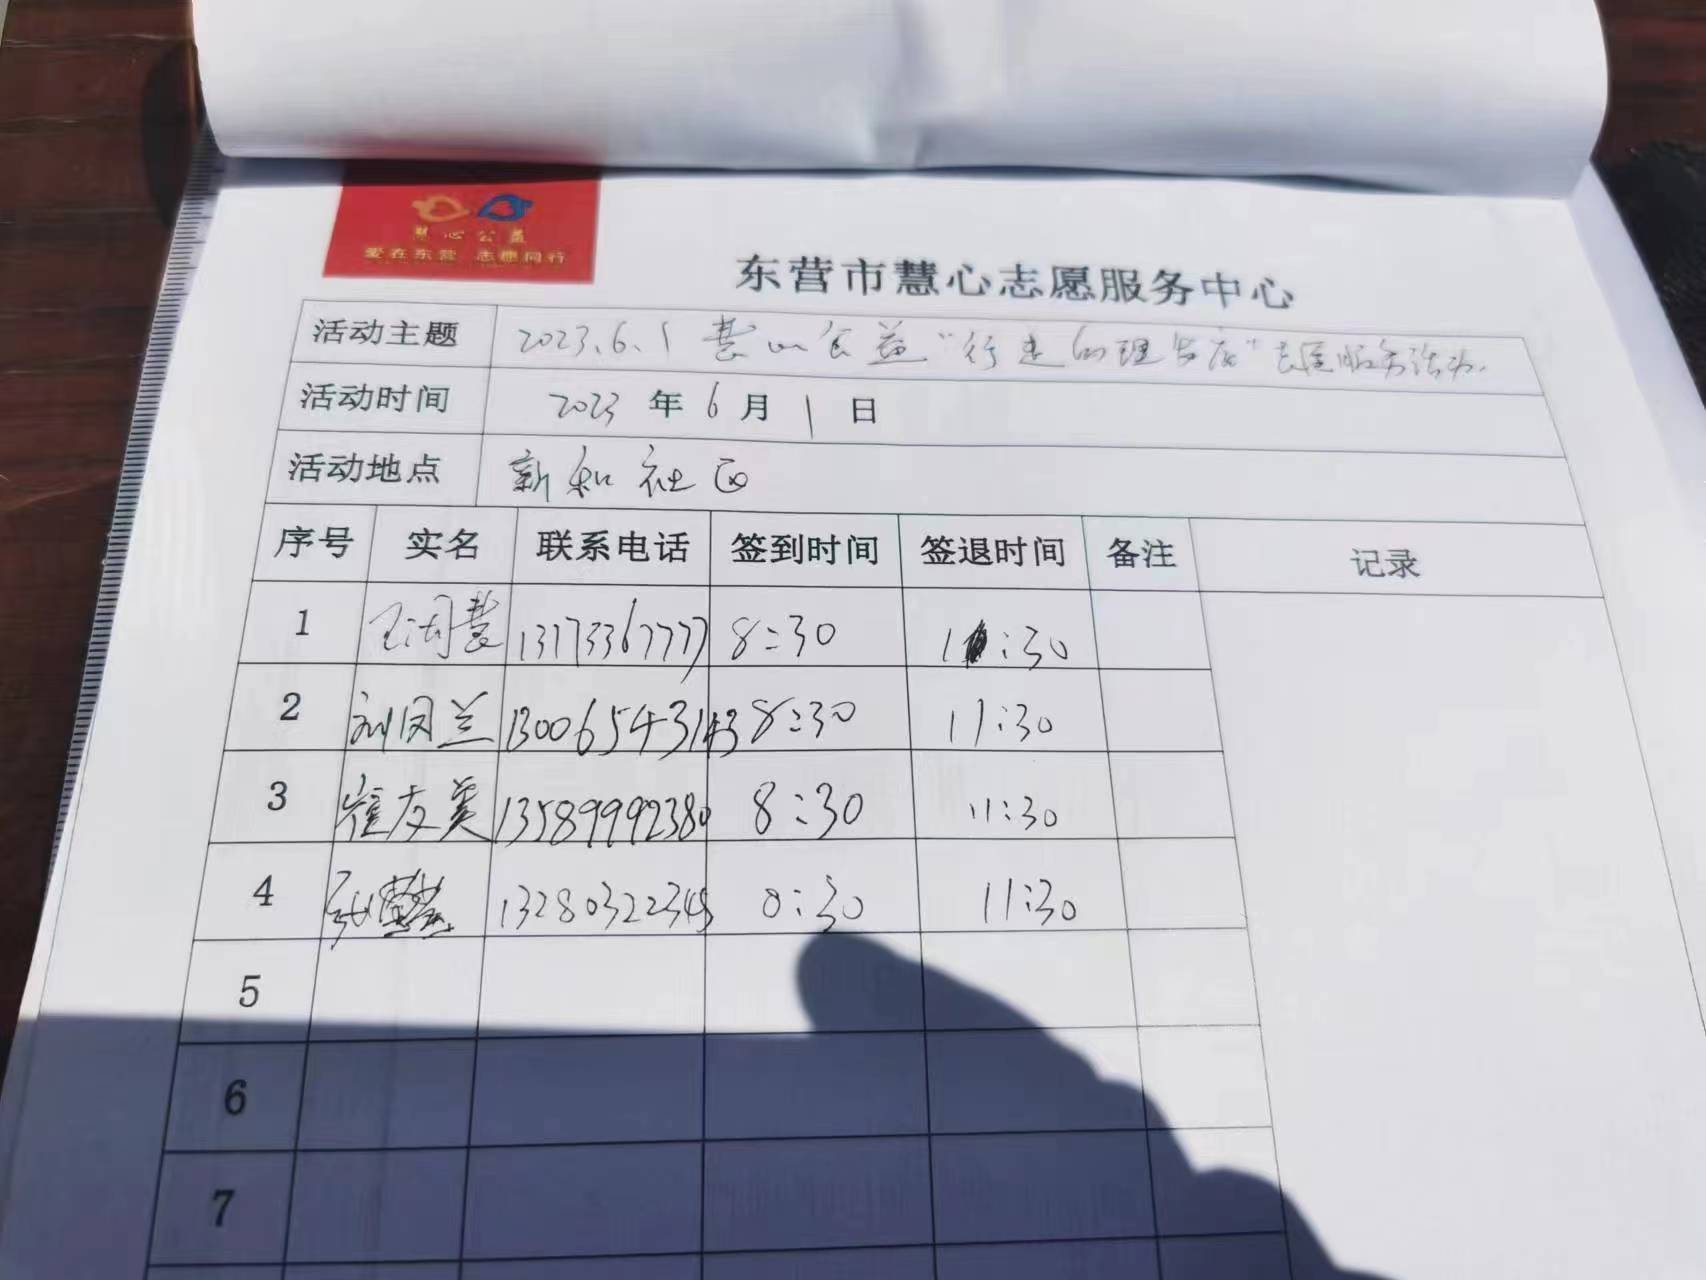 慧心公益
爱在东营 志愿同行
东营市慧心志愿服务中心
活动主题 2023.6.1 慧心公益“行走的理发店”志愿服务活动.
活动时间 2023 年 6 月 1 日
活动地点 新和社区
序号 实名 联系电话 签到时间 签退时间 备注 记录
1 13173367777 8:30 11:30
2 刘凤兰 13006543143 8:30 11:30
3 崔友美 13589992380 8:30 11:30
4 张 13280322345 8:30 11:30
5
6
7